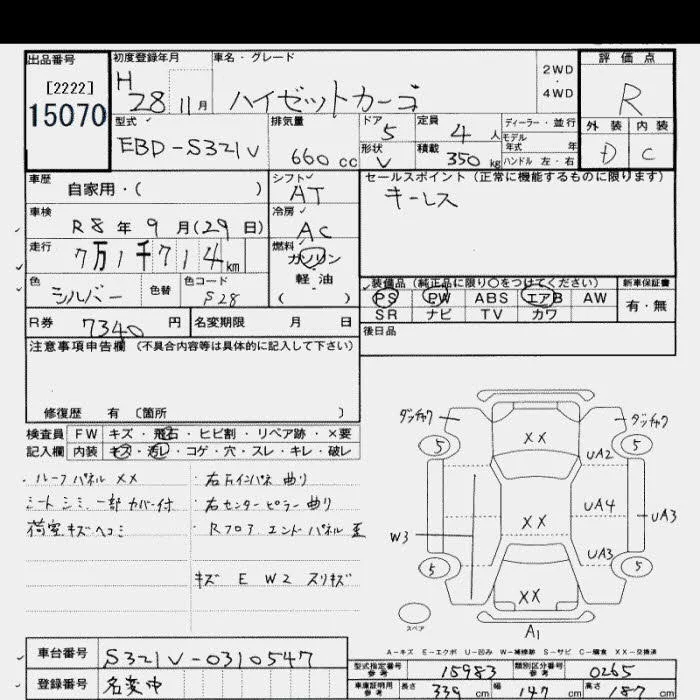 出品番号 初度登録年月 車名・グレード 2WD・4WD 評価点
[2222]
15070
H 28 11月 ハイゼットカーゴ R
型式 排気量 ドア 定員 ディーラー・並行 外装 内装
EBD-S321V 660cc 5 4人 モデル年式 年 D C
形状 V 積載 350kg ハンドル 左・右
車歴 自家用・( ) シフト AT セールスポイント(正常に機能するものに限ります)
キーレス
車検 R8年9月(29日) 冷房 AC
走行 7万1千714km 燃料 ガソリン
軽油
( )
色 シルバー 色替 色コード S28
装備品(純正品に限り○をつけてください) 新車保証書
PS PW ABS エアB AW 有・無
SR ナビ TV カワ
R券 7340円 名変期限 月 日 後日品
注意事項申告欄(不具合内容等は具体的に記入して下さい)
修復歴 有 〔箇所 〕
検査員 FW キズ・飛石・ヒビ割・リペア跡・×要
記入欄 内装 キズ・汚レ・コゲ・穴・スレ・キレ・破レ
・ルーフパネル XX
シートシミ、一部カバー付
荷室キズヘコミ
・右リインパネ曲り
・右センターピラー曲り
・Rフロア、エンドパネル歪
キズ E W2 スリキズ
ダッチャク
ダッチャク
5 XX 5
UA2
XX UA4 UA3
W3
UA3
5 XX 5
スペア
A1
A-キズ E-エクボ U-凹み W-補修跡 S-サビ C-腐食 XX-交換済
車台番号 S321V-0310547
登録番号 名変中
型式指定番号 参考 15983 類別区分番号 参考 0265
車庫証明用 参考 長さ 339cm 幅 147cm 高さ 187cm